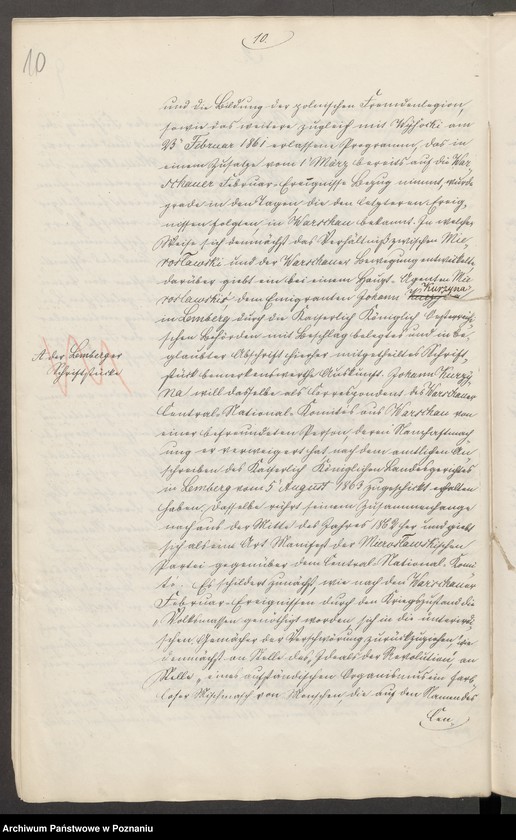 10
10.
und die Bildung der polnischen Fremdenlegion,
sowie das weitere zugleich mit Wysocki am
23 Februar 1861 erlassene Programm, das in
einem Zusatze vom 1 März bereits auf die War
schauer Februar-Ereignisse Bezug nimmt, wurde
grade in den Tagen die den letzteren Ereig
nissen folgten, in Warschau bekannt. In welcher
Weise sich demnächst das Verhältniß zwischen Mie
roslawski und der Warschauer Bewegung entwickelte
darüber giebt ein bei einem Haupt-Agenten Mie
roslawskis dem Emigranten Johann Kurzyna
in Lemberg durch die Kaiserlich Königlich Oesterrei
schen Behörden mit Beschlag belegtes und in be
glaubter Abschrift hierher mitgetheiltes Schrift
A der Lemberger
Schriftstücke
stück bemerkenswerthe Auskunft. Johann Kurzy
na will dasselbe als Correspondent des Warschauer
Central-National-Komités aus Warschau von
einer befreundeten Person, deren Namhaftmach
ung er verweigert hat nach dem amtlichen An
schreiben des Kaiserlich Königlichen Landesgerichtes
in Lemberg vom 5 August 1863 zugeschickt erhalten
haben, dasselbe rührt seinem Zusammenhange
nach aus der Mitte des Jahres 1862 her und giebt
sich als eine Art Manifest der Mieroslawskischen
Partei gegenüber dem Central-National-Komi
té. Es schildert zunächst, wie nach den Warschauer
Februar-Ereignissen durch den Kriegszustand die
Volksmassen genöthigt worden, sich in die unterirdi
schen Gemächer der Verschwörung zurückzuziehen, wie
demnächst an Stelle des „Ideals der Revolution" an
Stelle „eines aufständischen Organismus ein farb
loser Mischmasch von Menschen, die auf den Namen des
Cen.
Archiwum Państwowe w Poznaniu